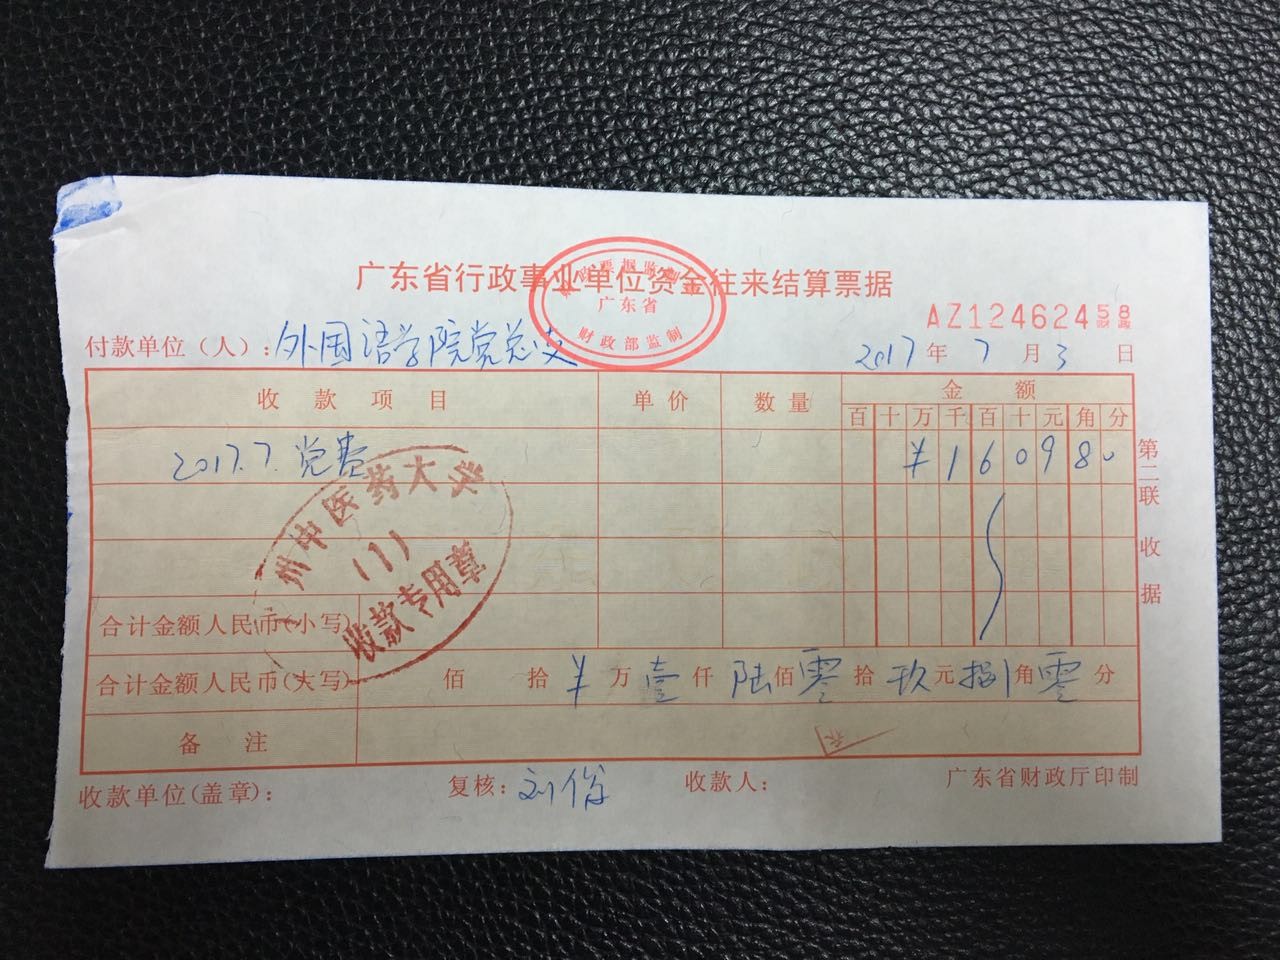 广东省行政事业单位资金往来结算票据
财政票据监制
广东省
财政部监制
AZ12462458
付款单位（人）：外国语学院党总支
2017年7月3日
收款项目 单价 数量 金额
百 十 万 千 百 十 元 角 分
2017.7.党费 ¥160980
广州中医药大学
(1)
收款专用章
合计金额人民币(小写)
合计金额人民币(大写) 佰 拾 ¥ 万 壹 仟 陆 佰 零 拾 玖 元 捌 角 零 分
备注
收款单位(盖章)： 复核：刘俊 收款人： 广东省财政厅印制
第二联 收据